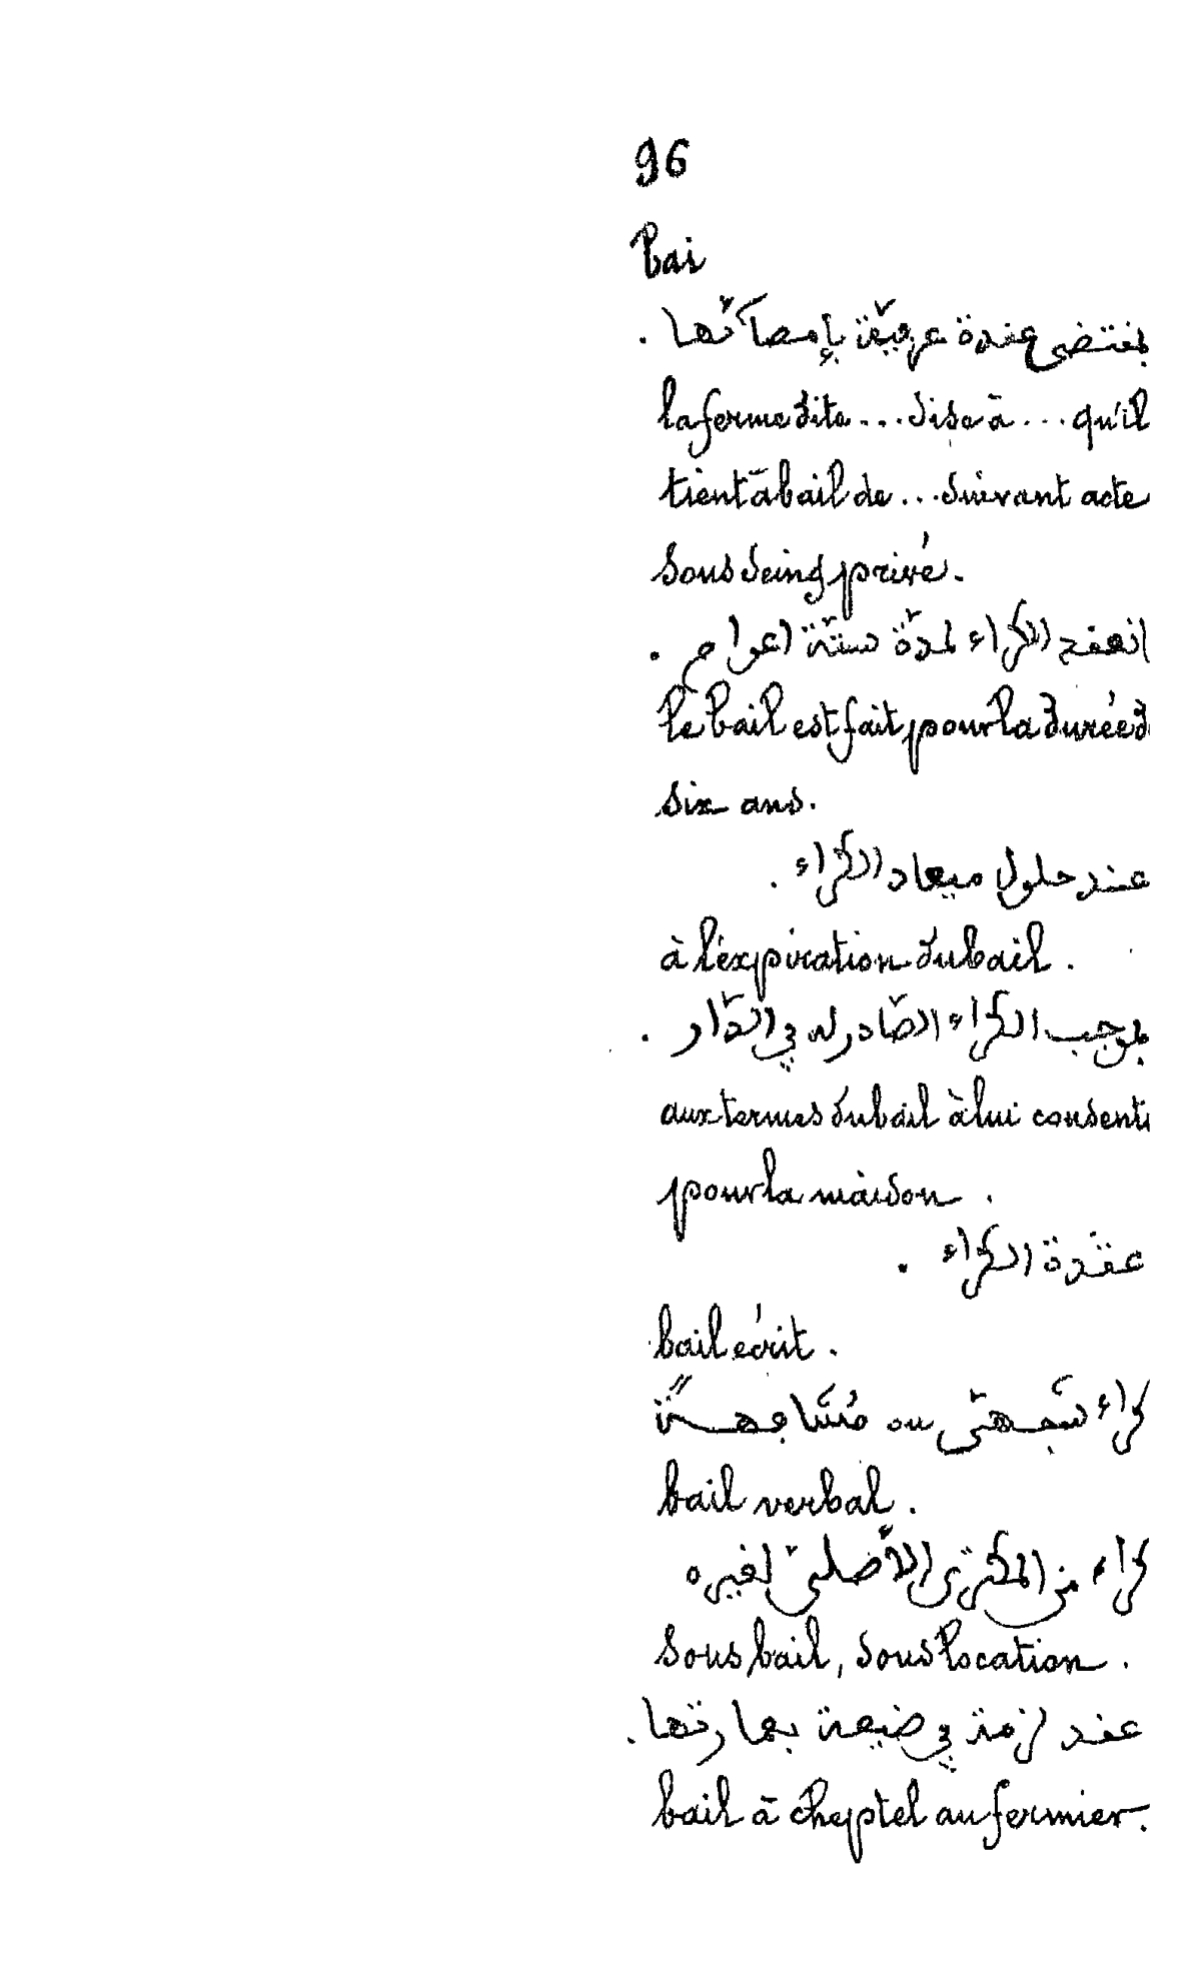 96
bai
بمقتضى عقدة عرفيّة بإمضائها .
la ferme dite ... sise à ... qu'il
tient à bail de ... suivant acte
sous seing privé .
انعقد الكراء لمدّة ستّة اعوام .
le bail est fait pour la durée d
six ans .
عند حلول ميعاد الكراء .
à l'expiration du bail .
بموجب الكراء الصّادر له في الدّار .
aux termes du bail à lui consenti
pour la maison .
عقدة الكراء .
bail écrit .
كراء شفهيّ ou مُشَافهةً
bail verbal .
كراء من المكتري الأصليّ لغيره
sous bail, sous location .
عقد لزمة في ضيعة بهارتها .
bail à cheptel au fermier .